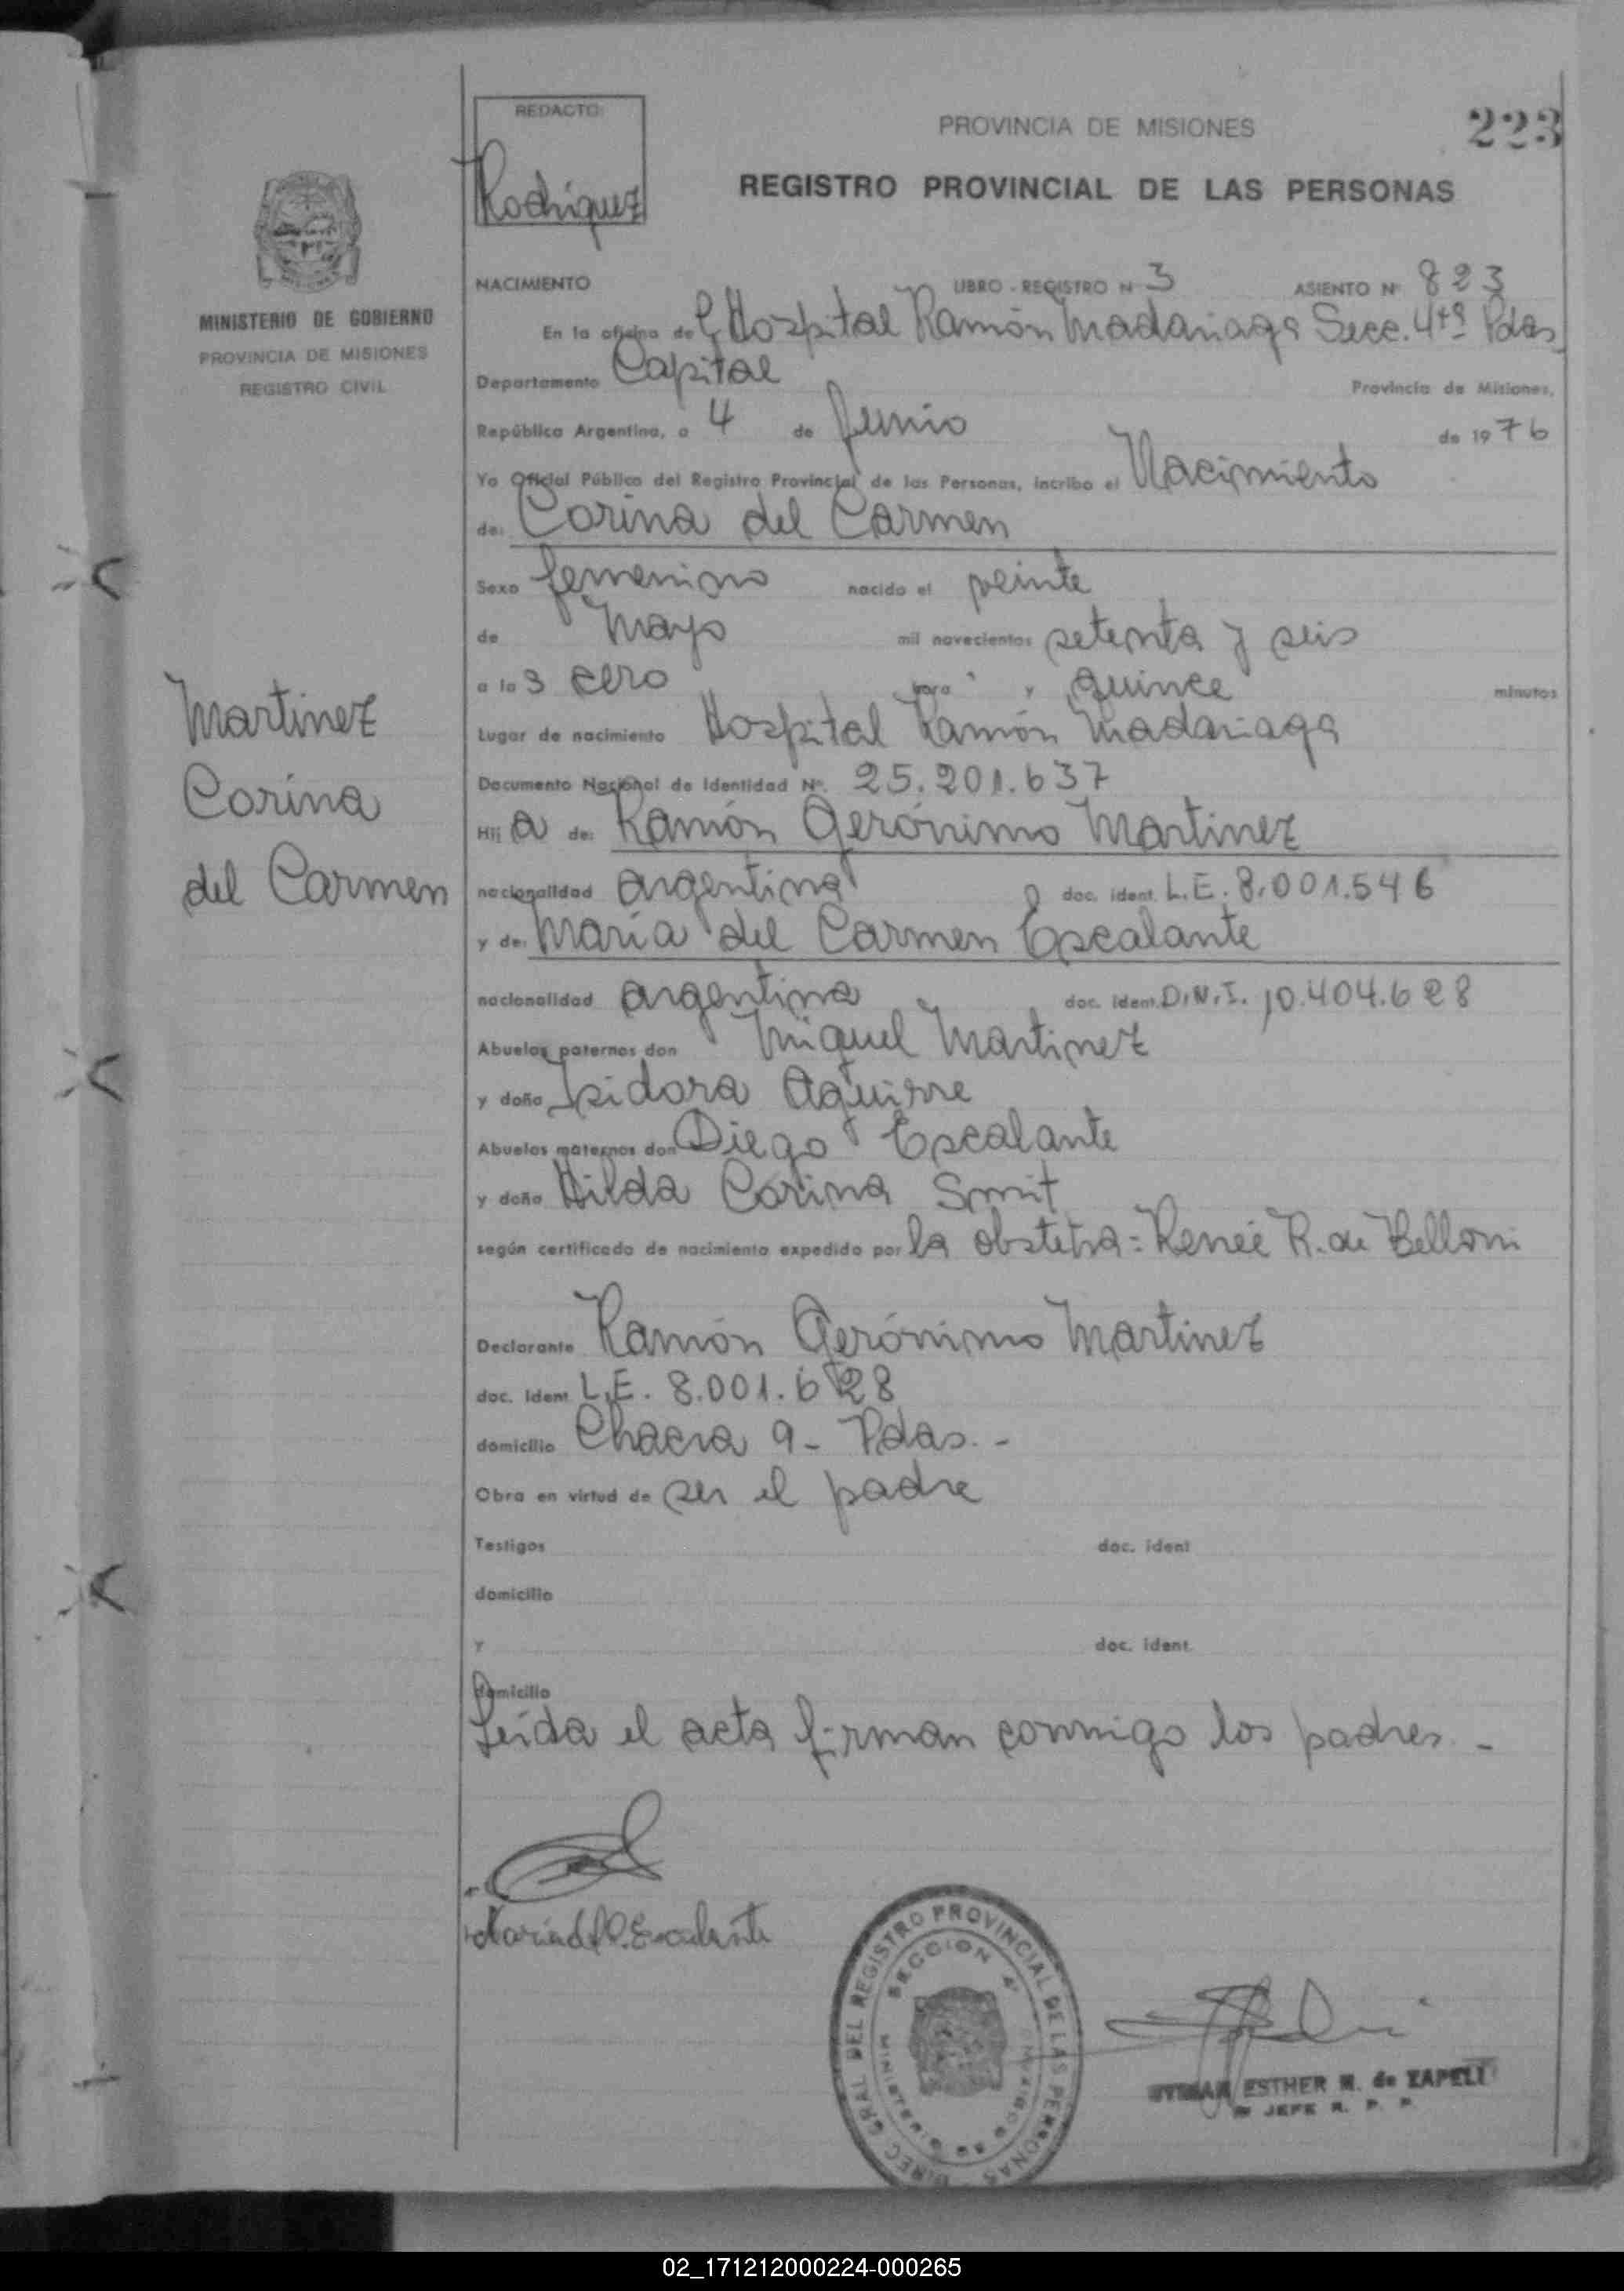 REDACTO:
Rodriguez
PROVINCIA DE MISIONES
223
REGISTRO PROVINCIAL DE LAS PERSONAS
MINISTERIO DE GOBIERNO
PROVINCIA DE MISIONES
REGISTRO CIVIL
NACIMIENTO LIBRO - REGISTRO Nº 3 ASIENTO Nº 823
En la oficina del Hospital Ramón Madariaga Secc. 4ta Pdas
Departamento Capital Provincia de Misiones,
República Argentina, a 4 de Junio de 1976
Yo Oficial Público del Registro Provincial de las Personas, incribo el Nacimiento
de: Corina del Carmen
Sexo femenino nacido el veinte
de Mayo mil novecientos setenta y seis
a la s cero hora y quince minutos
Lugar de nacimiento Hospital Ramón Madariaga
Documento Nacional de Identidad Nº. 25.201.637
Hij a de: Ramón Gerónimo Martinez
nacionalidad argentina doc. ident. L.E. 8.001.546
y de: María del Carmen Escalante
nacionalidad argentina doc. ident. D.N.I. 10.404.628
Abuelos paternos don Miguel Martinez
y doña Isidora Aguirre
Abuelos maternos don Diego Escalante
y doña Hilda Corina Smit
según certificado de nacimiento expedido por la obstetra: Renée R. de Belloni
Martinez
Corina
del Carmen
Declarante Ramón Gerónimo Martinez
doc. ident L.E. 8.001.628
domicilio Chacra 9 - Pdas. -
Obra en virtud de ser el padre
Testigos doc. ident
domicilio
y doc. ident.
domicilio
Leída el acta firman conmigo los padres. -
María del C. Escalante
DIREC. GRAL DEL REGISTRO PROVINCIAL DE LAS PERSONAS
SECCION 4ª
MINISTERIO DE GOBIERNO
ESTHER M. de ZAPELI
JEFE R. P. P.
02_171212000224-000265